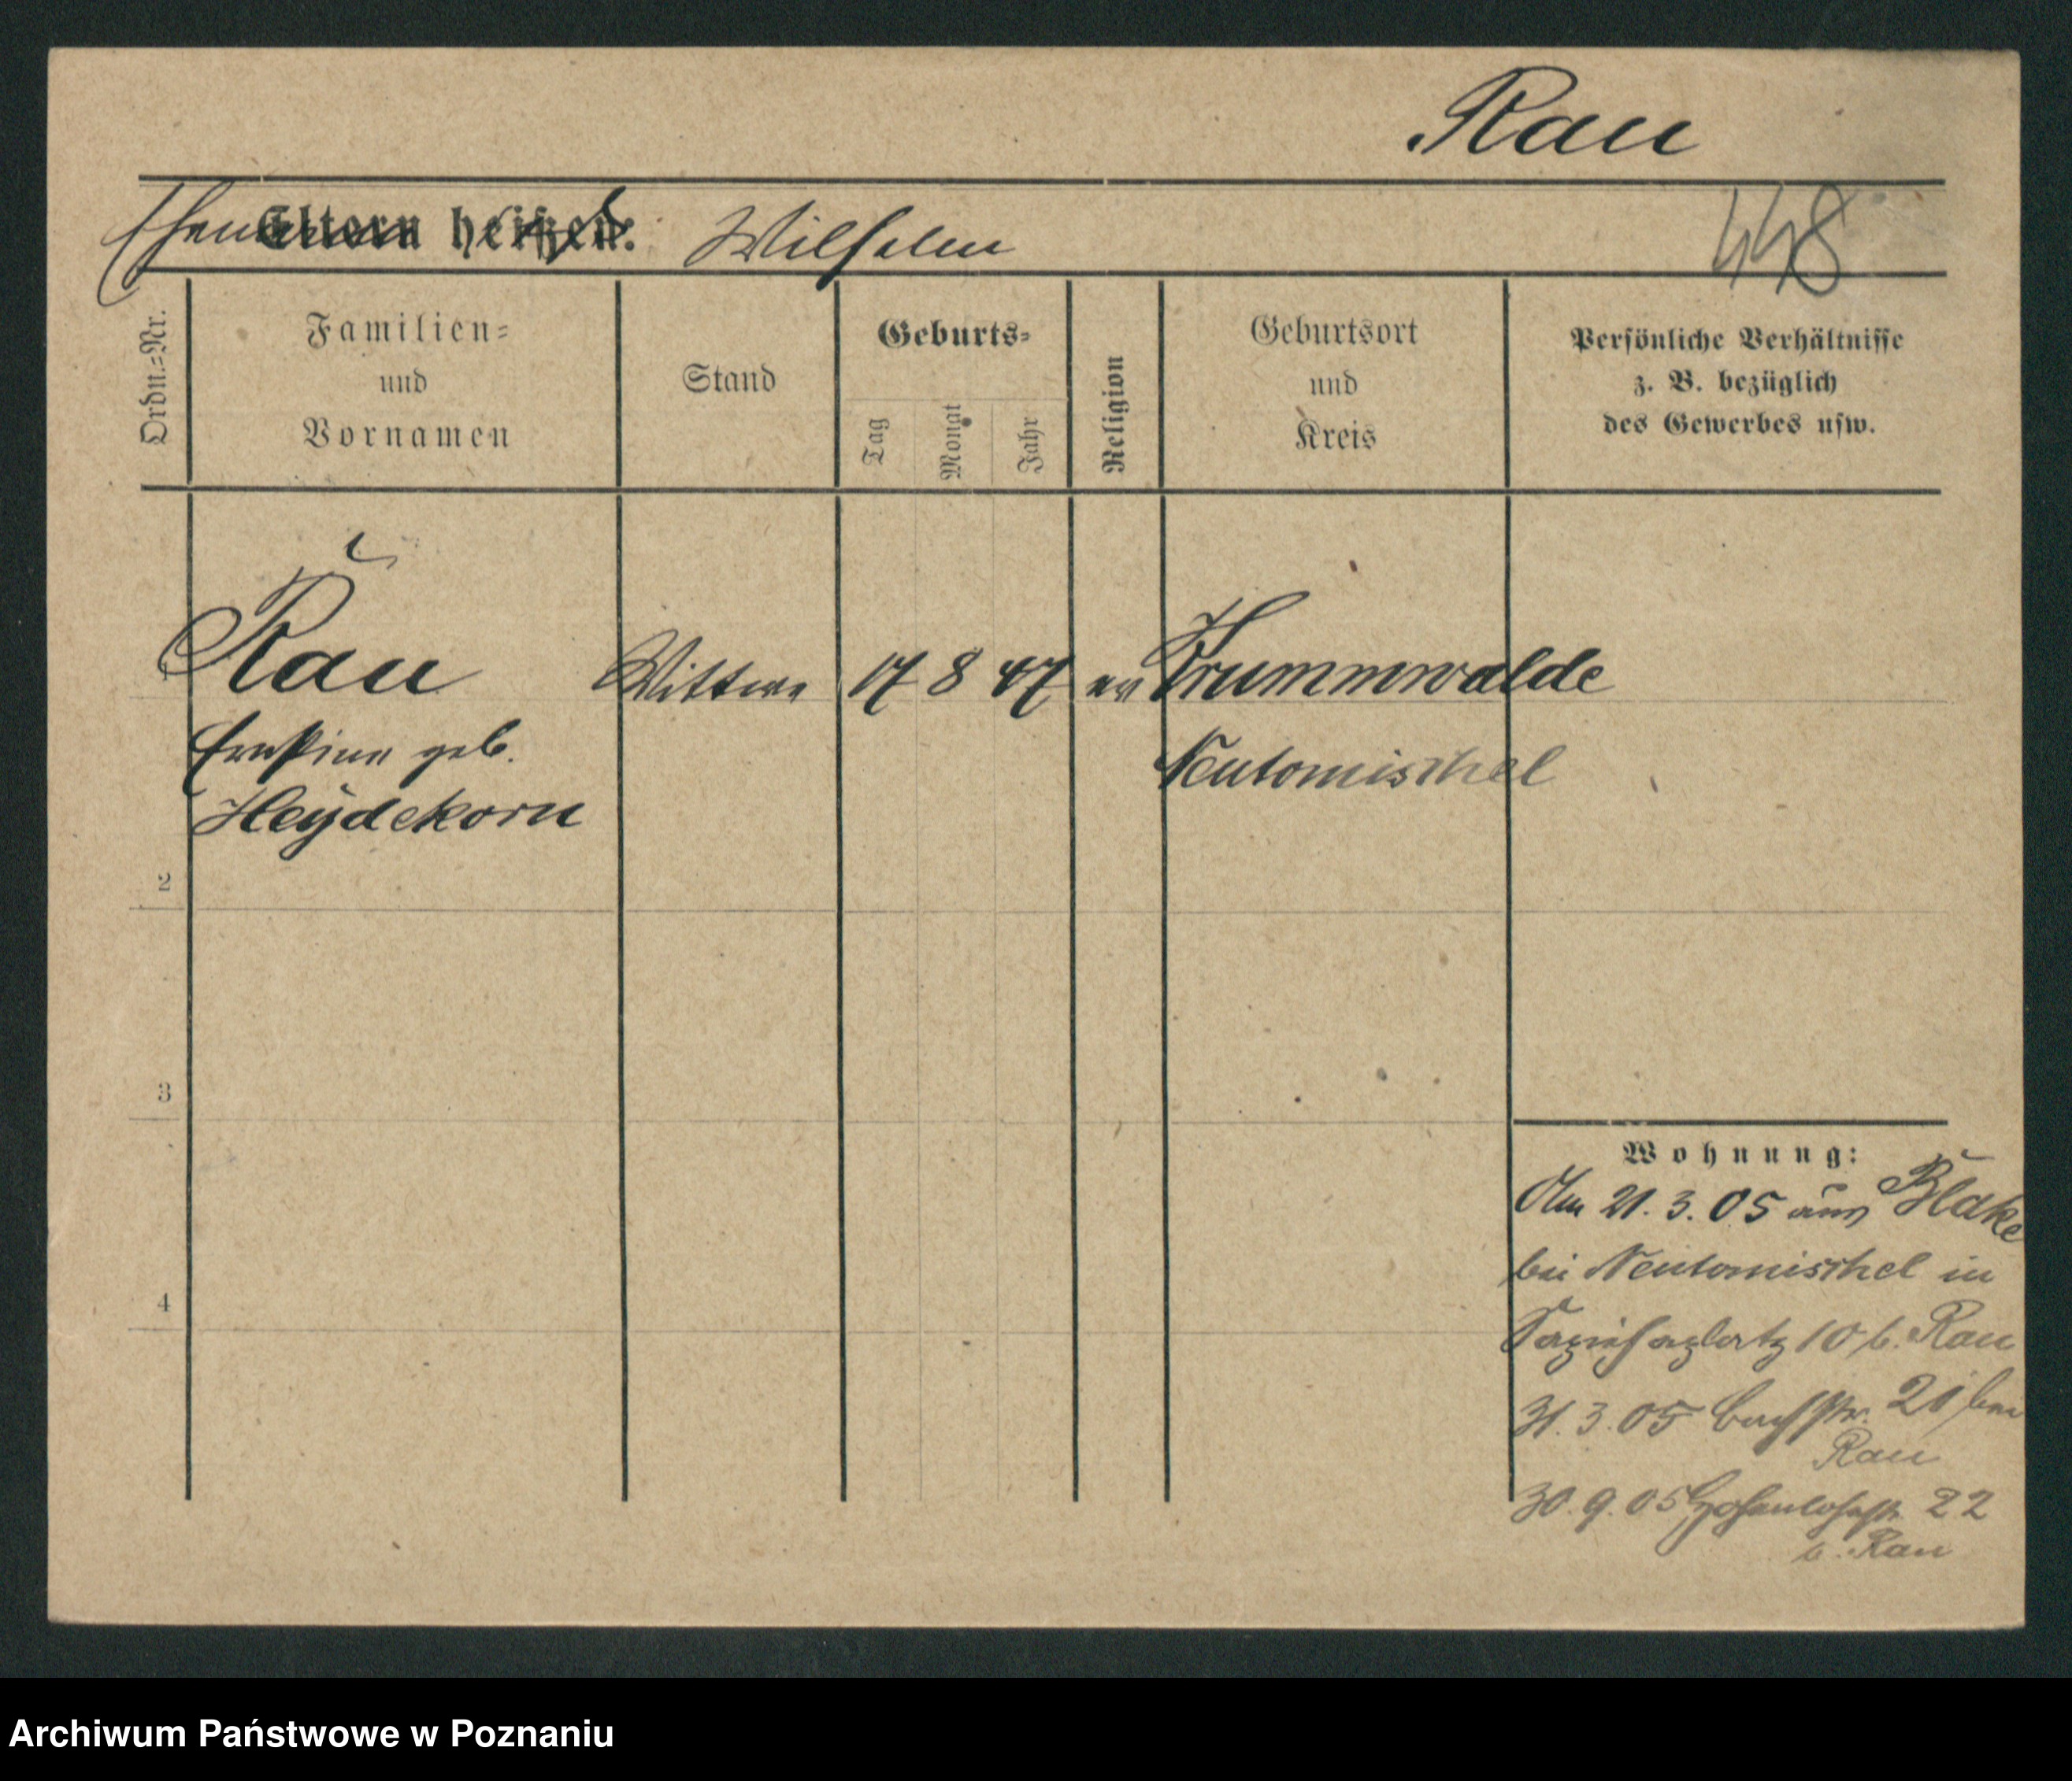 Rau
Eltern heißen: Wilhelm
448
Ordn.=Nr.
Familien=
und
Vornamen
Stand
Geburts=
Tag
Monat
Jahr
Religion
Geburtsort
und
Kreis
Persönliche Verhältnisse
z. B. bezüglich
des Gewerbes usw.
1
Rau Wittwe 17 8 47 ev Krummwalde
geb. Neutomischel
Heydekorn
2
3
4
Wohnung:
Am 21. 3. 05 aus Blake
bei Neutomischel in
10 b. Rau
31. 3. 05 Bachstr. 21 bei
Rau
30. 9. 05 Hohenlohestr. 22
b. Rau
Archiwum Państwowe w Poznaniu